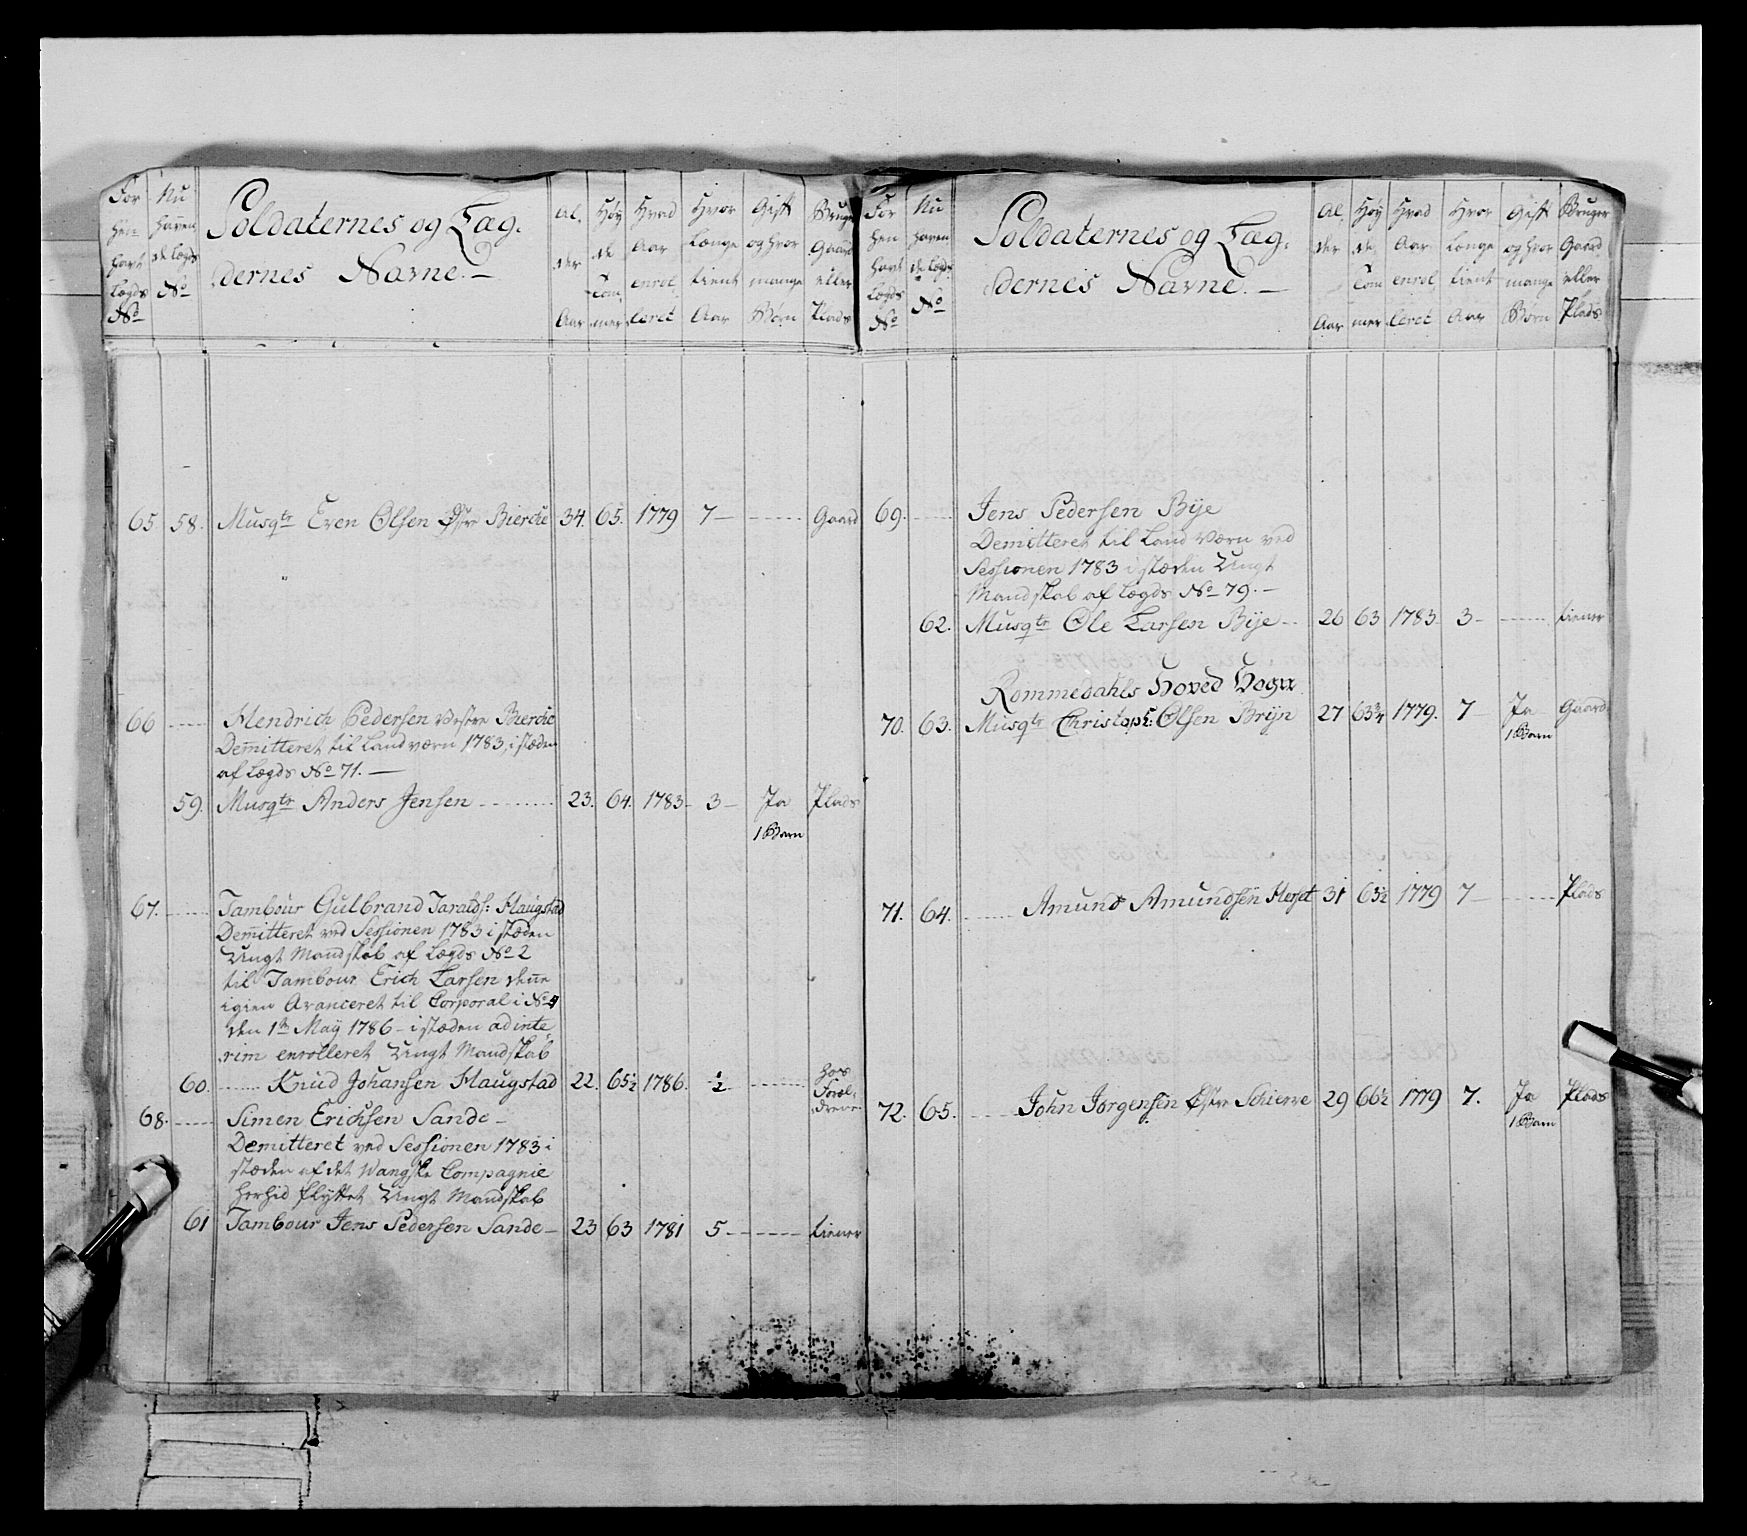 For hen havt Lægds No | Nu haven de Lægds No | Soldaternes og Læg- | Al. der Aar | Høy de Tom mer | Hvad Aar enrol leret | Hvor Længe tient Aar | Gift og hvor mange Børn | Bruger Gaard eller Plads
dernes Navne.—
65 58. Musqtr Even Olsen Østre Bierche 34. 65. 1779 7— ------ Gaard
66 ----- Hendrich Pedersen Vestre Bierche
Demitteret til Landværn 1783, i stæden
af Lægds No 71.—
59. Musqtr Anders Jensen -------- 23. 64. 1783- 3— Ja Plads
1 Barn
67. ----- Tambour Gulbrand Taralds: Haugstad
Demitteret ved Sessionen 1783 i stæden
Ungt Mandskab af Lægds No 2
til Tambour Erich Larsen denne
igien Avanceret til Corporal i No 4
den 1te May 1786 - i stæden ad inte
rim enrolleret Ungt Mandskab
60. ----- Knud Johansen Haugstad 22. 65½ 1786. ½ ------ hos Foræl- drene
68. ----- Simen Erichsen Sande-
Demitteret ved Sessionen 1783 i
stæden af det Wangske Compagnie
herhid flyttet Ungt Mandskab
61 Tambour Jens Pedersen Sande— 23 63 1781 5------- tiener
For hen havt Lægds No | Nu haven de Lægds No | Soldaternes og Læg- | Al. der Aar | Høy de Tom mer | Hvad Aar enrol leret | Hvor Længe tient Aar | Gift og hvor mange Børn | Bruger Gaard eller Plads
dernes Navne.—
69. ----- Jens Pedersen Bye
Demitteret til Land Værn ved
Sessionen 1783 i stæden Ungt
Mandskab af Lægds No 79.—
62. Musqtr Ole Larsen Bye-- 26 63 1783 3— ------ tiener
Rommedahls Hoved Sogn
70. 63. Musqtr Christoph: Olsen Bryn 27 63¾ 1779. 7— Ja Gaard
1 Barn
71. 64. ------ Amund Amundsen Herset 31 63½ 1779 7— ------ Plads
72. 65. ------ John Jørgensen Østre Schierre 29 66½ 1779 7. Ja Plads
1 Barn